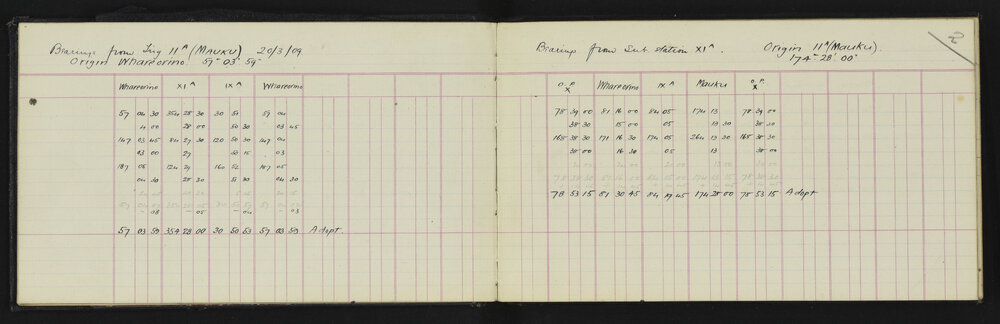 Bearings from Trig 11ᴬ (MAUKU) 20/3/09
Origin Whareorino 57° 03' 59"
Whareorino XIᴬ IXᴬ Whareorino
57 04 30 354 28 30 30 51 59 04
4 00 28 00 50 30 03 45
147 03 45 84 27 30 120 50 30 147 04
03 00 27 50 15 03
187 05 124 29 160 52 187 05
04 30 28 30 51 30 04 30
- 08 - 05 - 04 - 03
57 03 59 354 28 00 30 50 53 57 03 59 Adopt.
2
Bearings from Sub station XIᴬ. Origin 11ᴬ (Mauku).
174° 28' 00"
O.P. X Whareorino IXᴬ Mauku O.P. X
78 39 00 81 16 00 84 05 174 13 78 39 00
38 30 15 00 05 13 30 38 30
168 38 30 171 16 30 174 05 264 13 30 168 38 30
38 00 16 30 05 13 38 00
78 53 15 81 30 45 84 19 45 174 28 00 78 53 15 Adopt